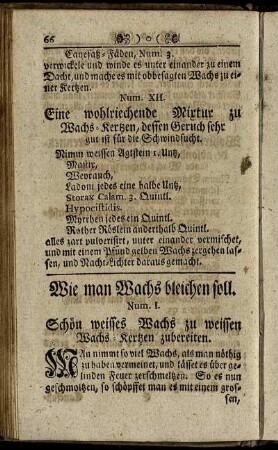 66
Canefatz-Fäden, Num. 3.
verwickele und winde es unter einander zu einem
Dacht, und mache es mit obbesagten Wachs zu ei-
ner Kertzen.
Num. XII.
Eine wohlriechende Mixtur zu
Wachs-Kertzen, dessen Geruch sehr
gut ist für die Schwindsucht.
Nimm weissen Agtstein 1. Untz,
Mastix,
Weyrauch,
Ladoni jedes eine halbe Untz,
Storax Calam. 3. Quintl.
Hypocistidis.
Myrrhen jedes ein Quintl.
Rother Röslein anderthalb Quintl.
alles zart pulverisirt, unter einander vermischet,
und mit einem Pfund gelben Wachs zergehen las-
sen, und Nacht-Lichter daraus gemacht.
Wie man Wachs bleichen soll.
Num. I.
Schön weisses Wachs zu weissen
Wachs-Kertzen zubereiten.
MAn nimmt so viel Wachs, als man nöthig
zu haben vermeinet, und lässet es über ge-
linden Feuer zerschmeltzen. So es nun
geschmoltzen, so schöpffet man es mit einem gros-
sen,